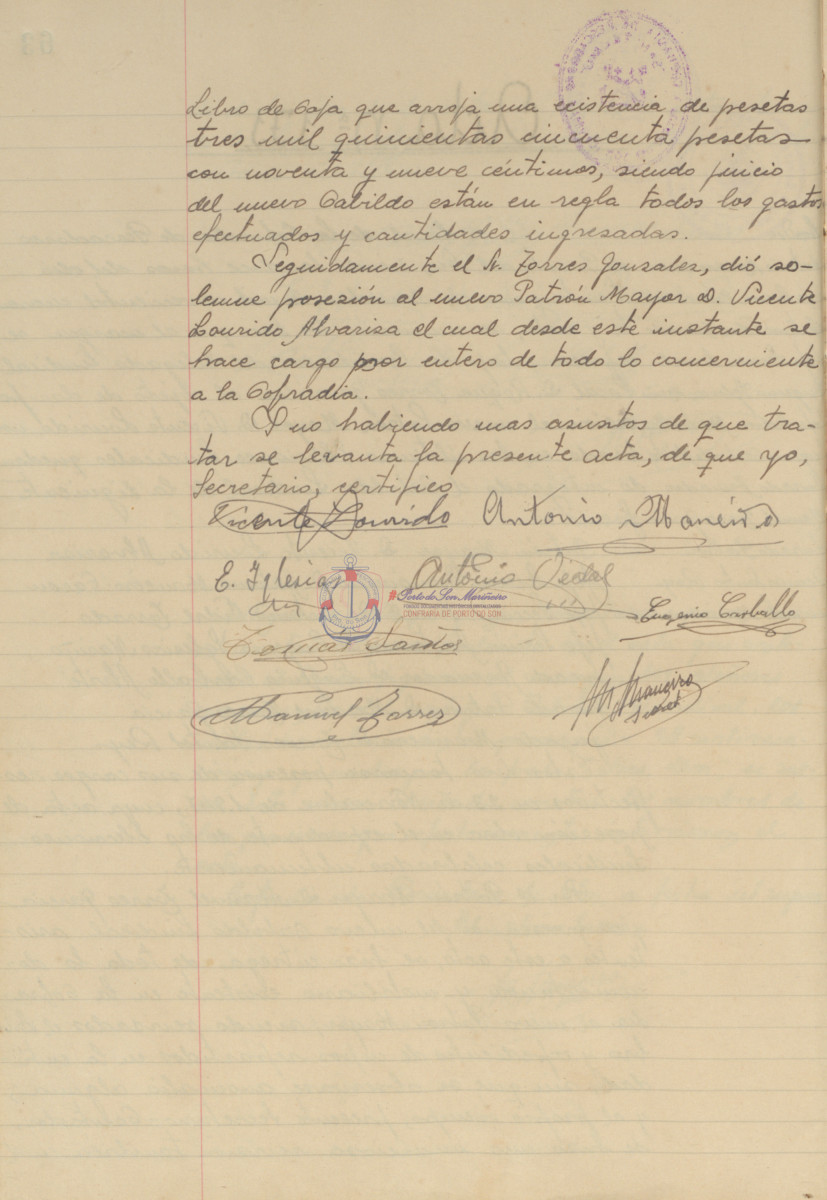 Libro de Caja que arroja una existencia de pesetas
tres mil quinientas cincuenta pesetas
con noventa y nueve céntimos, siendo juicio
del nuevo Cabildo están en regla todos los gastos
efectuados y cantidades ingresadas.
Seguidamente el Sr. Torres Gonzalez, dió so-
lemne posezión al nuevo Patrón Mayor D. Vicente
Lourido Alvariza el cual desde este instante se
hace cargo por entero de todo lo concerniente
a la Cofradia.
Y no habiendo mas asuntos de que tra-
tar se levanta la presente acta, de que yo,
Secretario, certifico
Vicente Lourido Antonio
E. Iglesias Antonio Vidal
#Porto do Son Mariñeiro
CONFRARÍA DE PORTO DO SON
Eugenio Carballo
Tomás Santos
Manuel Torres
M. Maneiro
Secret